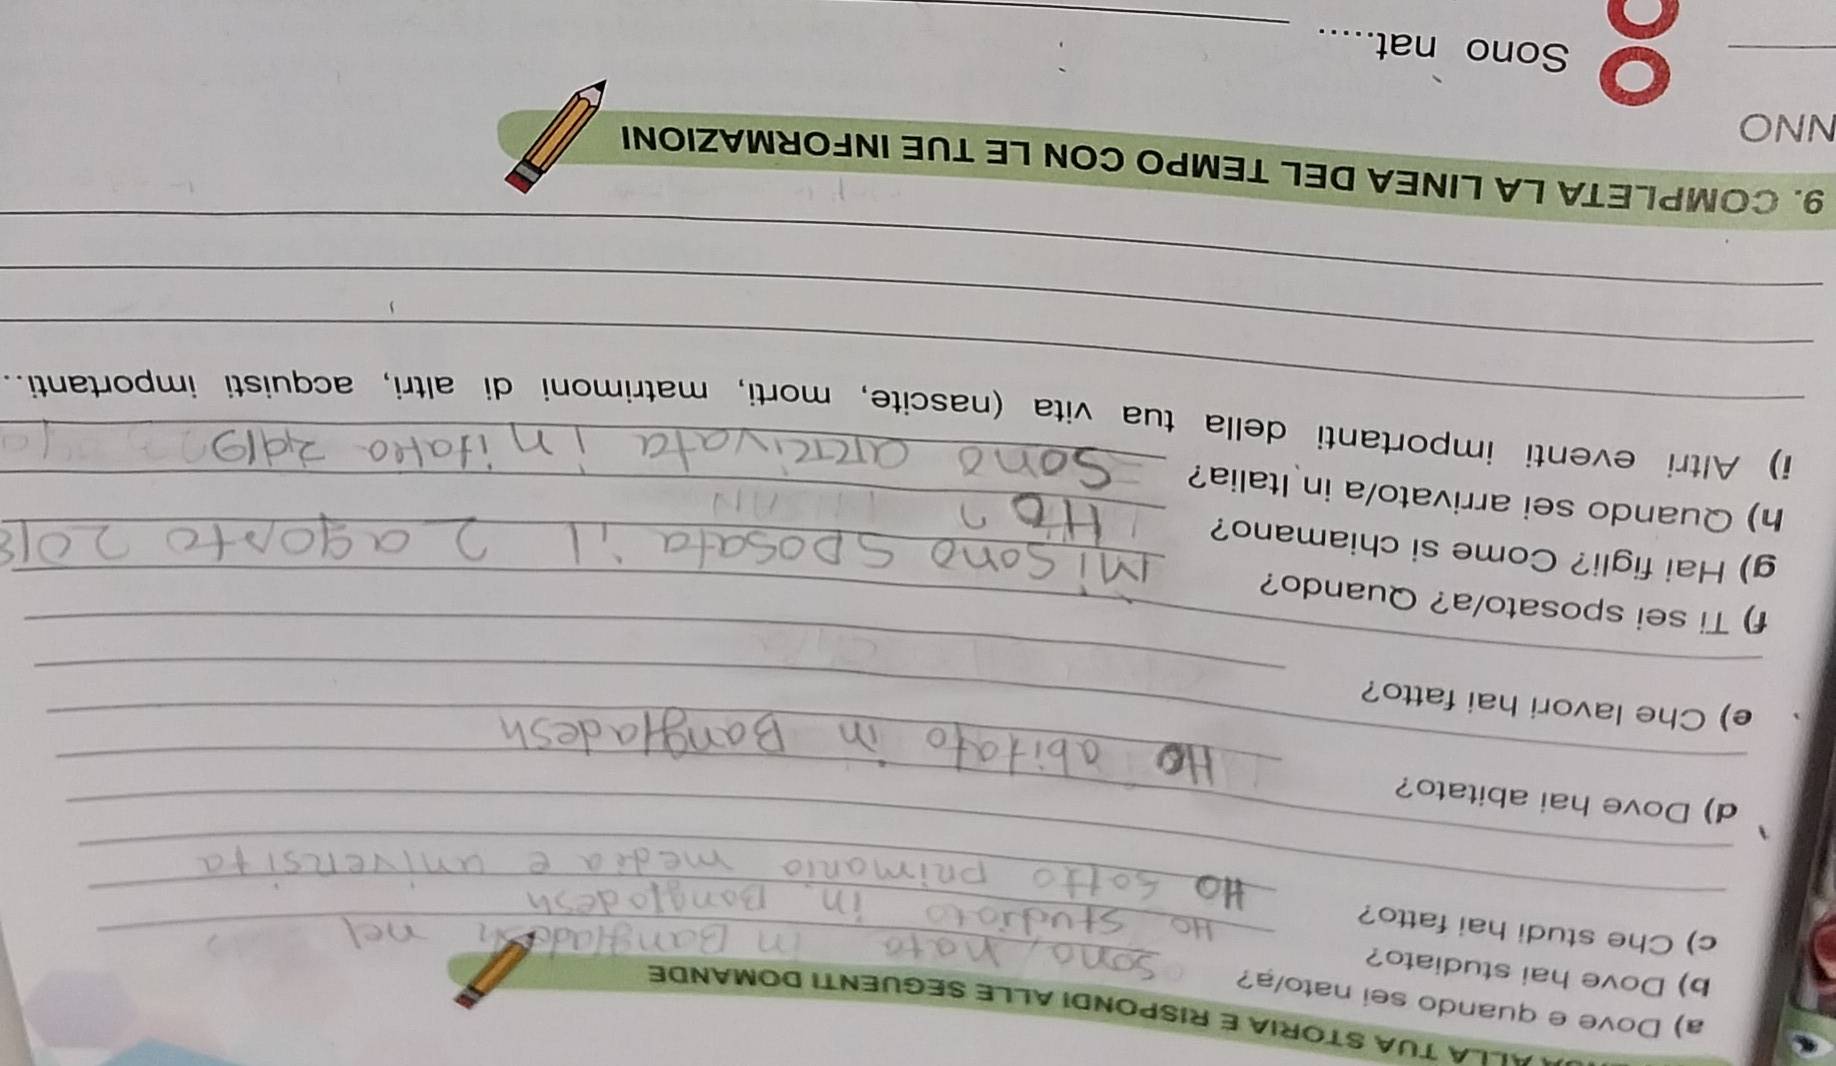 ALLA TUA STORIA E RISPONDI ALLE SEGUENTI DOMANDE
a) Dove e quando sei nato/a? sono nato in Bangladesh nel
b) Dove hai studiato? Ho studiato in Bangladesh
c) Che studi hai fatto? Ho sotto primario media e universita
d) Dove hai abitato? Ho abitato in Bangladesh
e) Che lavori hai fatto?
f) Ti sei sposato/a? Quando? Mi sono sposata il 2 agosto 2018
g) Hai figli? Come si chiamano? Ho
h) Quando sei arrivato/a in Italia? Sono arrivata in itako 2019
i) Altri eventi importanti della tua vita (nascite, morti, matrimoni di altri, acquisti importanti..
9. COMPLETA LA LINEA DEL TEMPO CON LE TUE INFORMAZIONI
NNO
Sono nat.....